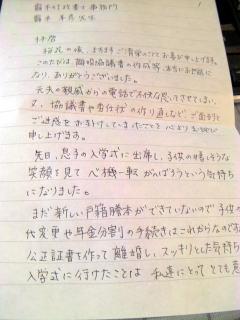 露木行政書士事務所
露木 幸彦 先生
1
拝啓
桜花の候、ますますご清栄のこととお喜び申し上げます。
このたびは、離婚協議書の作成等、本当にお世話に
なり、ありがとうございました。
元夫の親戚からの電話で不快な思いさせてしまい、
又、協議書や委任状の作り直しなど、ご面倒と
ご迷惑をおかけしていまったことを 心よりお詫び
申し上げます。
先日、息子の入学式に出席し、子供の晴れそうな
笑顔を見て 心機一転 がんばろうという気持ち
になりました。
まだ新しい戸籍謄本ができていないので 子供の
代変更や年金分割の手続きはこれからなのです
公正証書を作って離婚し、スッキリとした気持ち
入学式に行けたことは 私達にとって とても意